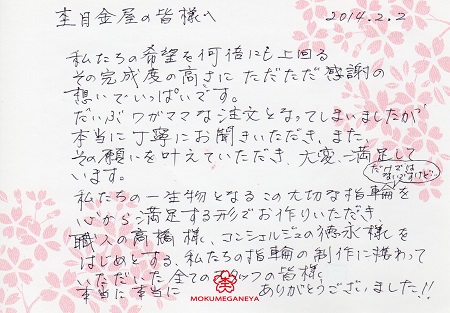 杢目金屋の皆様へ 2014.2.2
私たちの希望を何倍にも上回る
その完成度の高さに ただただ感謝の
想いでいっぱいです。
だいぶワガママなご注文となってしまいましたが
本当に丁寧にお聞きいただき、また、
その願いを叶えていただき、大変ご満足して
います。
私たちの一生物となるこの大切な指輪を
心からご満足する形でお作りいただき、
職人の高橋様、コンシェルジュの徳永様を
はじめとする、私たちの指輪の制作に携わって
いただいた全てのスタッフの皆様
本当に本当に ありがとうございました!!
MOKUMEGANEYA